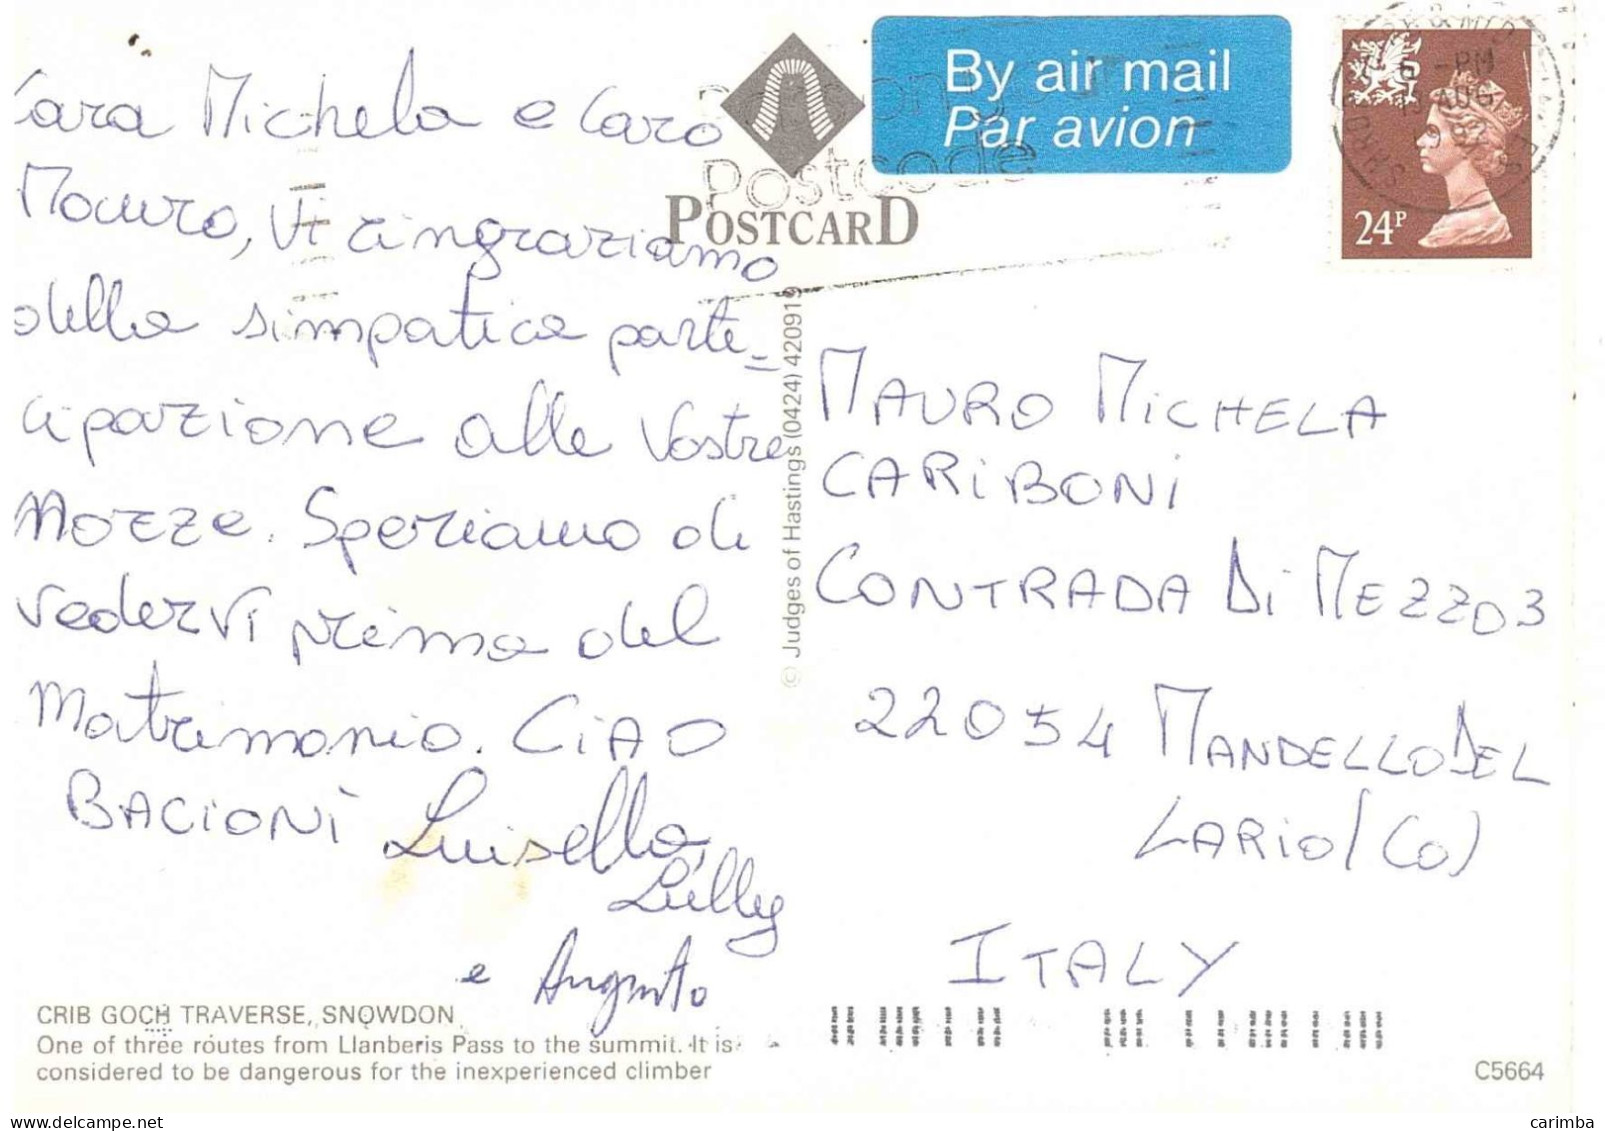 Cara Michela e Caro
Mauro, Vi ringraziamo
della simpatica parte=
cipazione alle Vostre
Nozze. Speriamo di
vedervi prima del
Matrimonio. CIAO
BACIONI Luisella,
Lilly
e Augusto
CRIB GOCH TRAVERSE, SNOWDON
One of three routes from Llanberis Pass to the summit. It is
considered to be dangerous for the inexperienced climber
POSTCARD
© Judges of Hastings (0424) 420919
By air mail
Par avion
postcode
24P
PM
AUG
MAURO MICHELA
CARIBONI
CONTRADA DI MEZZO 3
22054 MANDELLO DEL
LARIO (CO)
ITALY
C5664
carimba